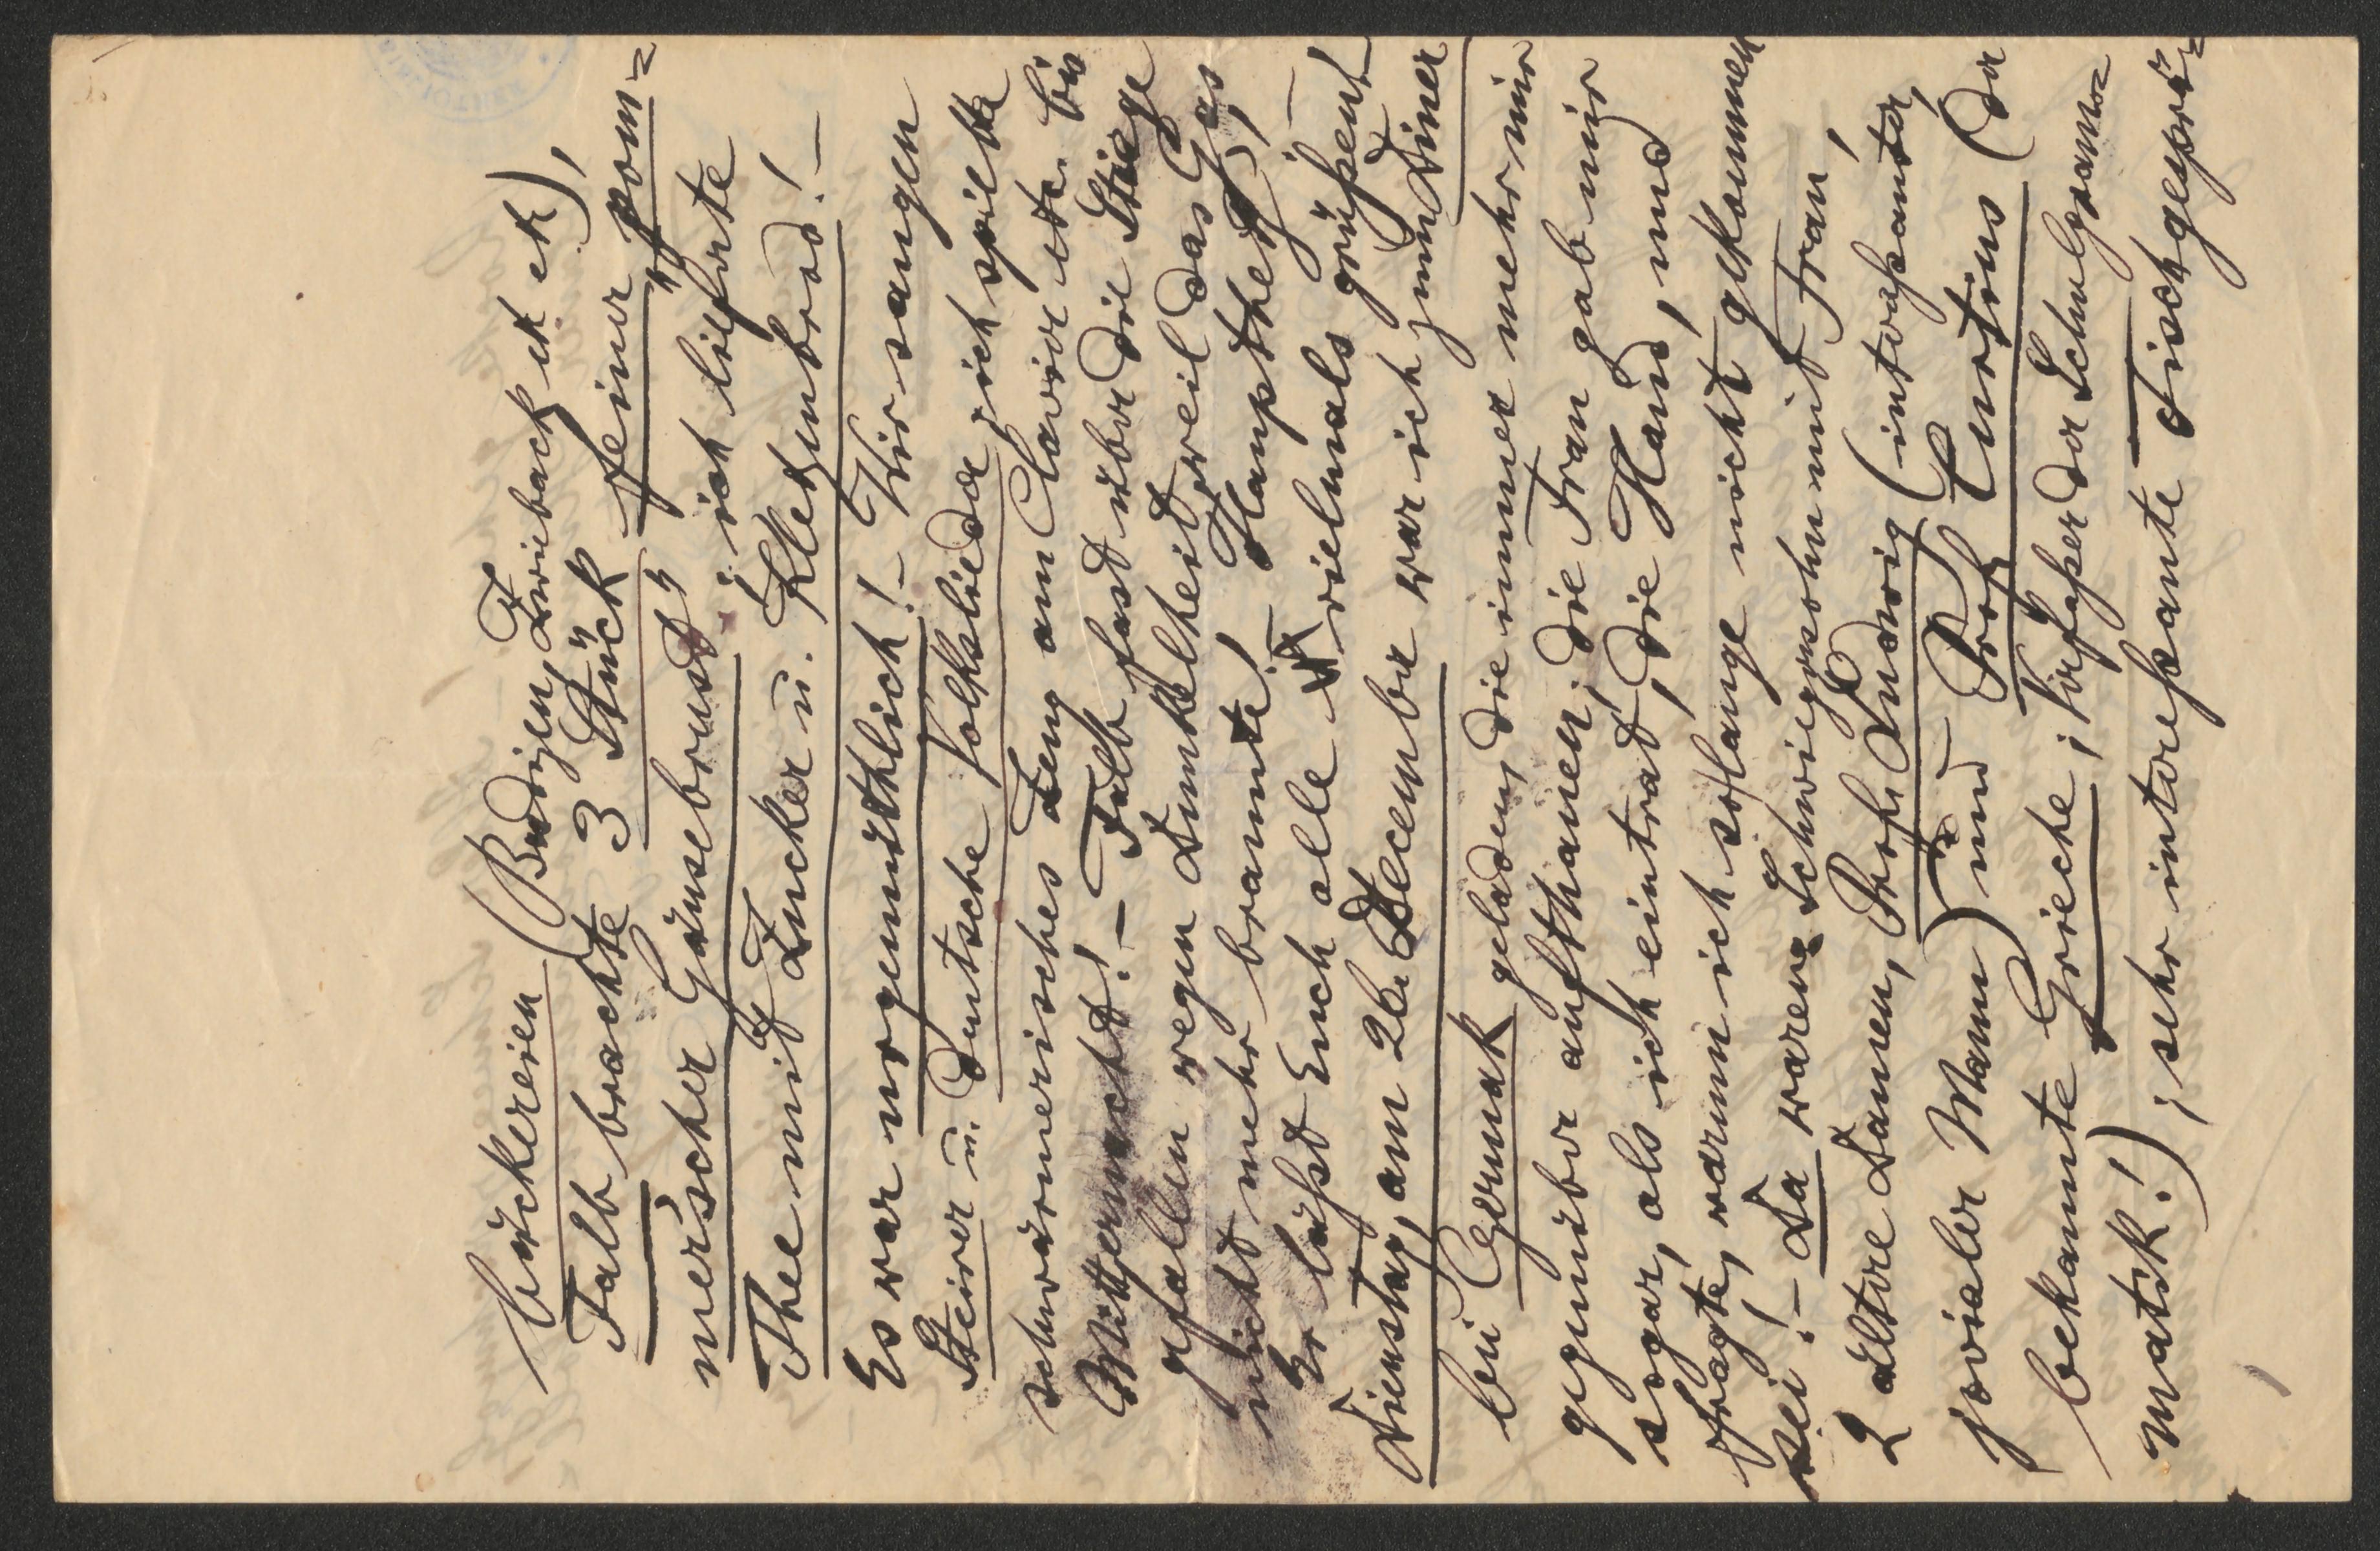 bäckereien (Brodzen, Zwieback etc etc),
Falb brachte 3 Stück feiner pom=
mer'scher Gänsebrust; ich lieferte
Thee mit Zucker u. Kletzenbrod! –
Es war urgemüthlich! – Wir sangen
Steirer u. deutsche Volkslieder, ich spielte
schwärmerisches Zeug am Clavier etc. bis
Mitternacht! – Falb fast über die Stiege
gefallen wegen Dunkelheit, weil das Gas
nicht mehr brannte! – Hauptheß! –
Er läßt Euch alle vielmals grüßen!
Dienstag, am 26. December war ich zum Diner
bei Czermak geladen, die immer mehr mir
gegenüber aufthauen; die Frau gab mir
sogar, als ich eintrat, die Hand, und
fragte, warum ich solange nicht gekommen
sei! – Da waren: Schwiegersohn mit Frau,
2 ältere Damen, Prof. Ludwig (interessanter,
jovialer Mann) und Prof. Curtius (der
bekannte Grieche; Verfaßer der Schulgram=
matik!); sehr interessante Tischgesprä=